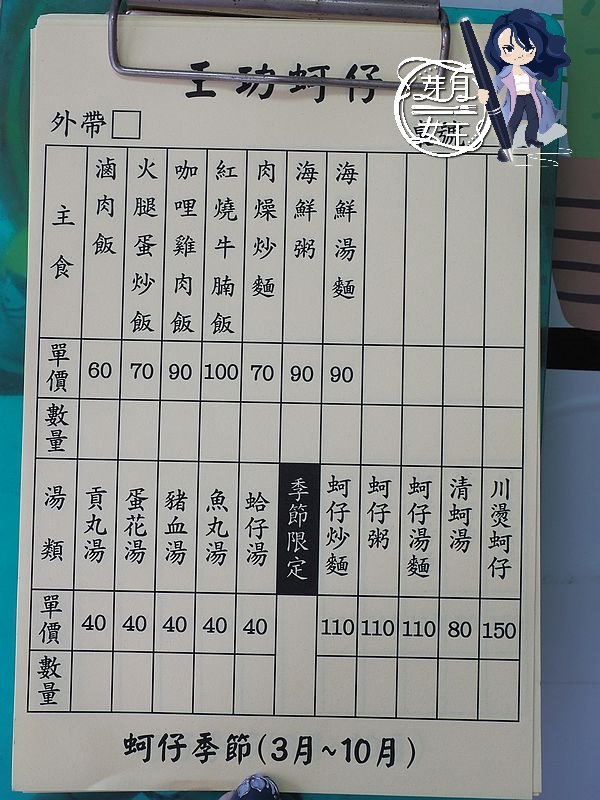 王功蚵仔
芽月
外帶
主食 滷肉飯 火腿蛋炒飯 咖哩雞肉飯 紅燒牛腩飯 肉燥炒麵 海鮮粥 海鮮湯麵
單價 60 70 90 100 70 90 90
數量
湯類 貢丸湯 蛋花湯 豬血湯 魚丸湯 蛤仔湯 季節限定 蚵仔炒麵 蚵仔粥 蚵仔湯麵 清蚵湯 川燙蚵仔
單價 40 40 40 40 40 110 110 110 80 150
數量
蚵仔季節(3月~10月)